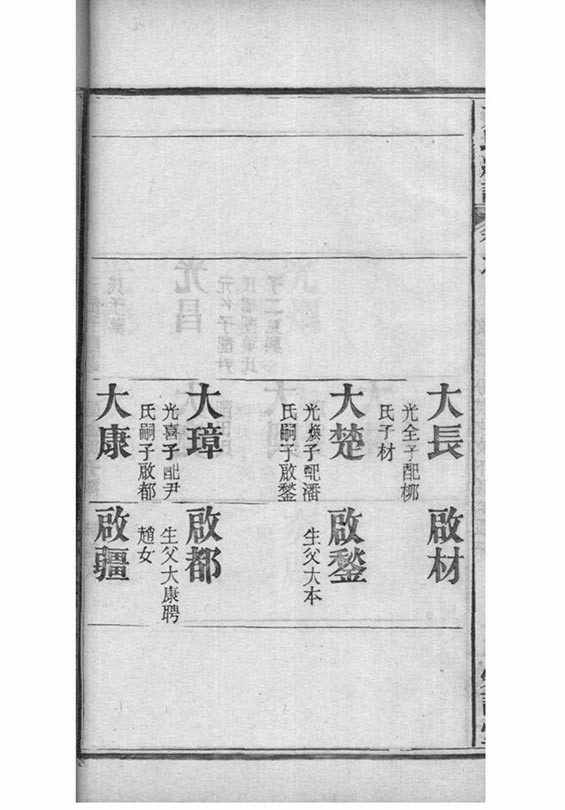 大長
光全子配柳
氏子材
大楚
光煥子配潘
氏嗣子啟鍫
大璋
光喜子配尹
氏嗣子啟都
大康
啟材
啟鍫
生父大本
啟都
生父大康聘
趙女
啟疆